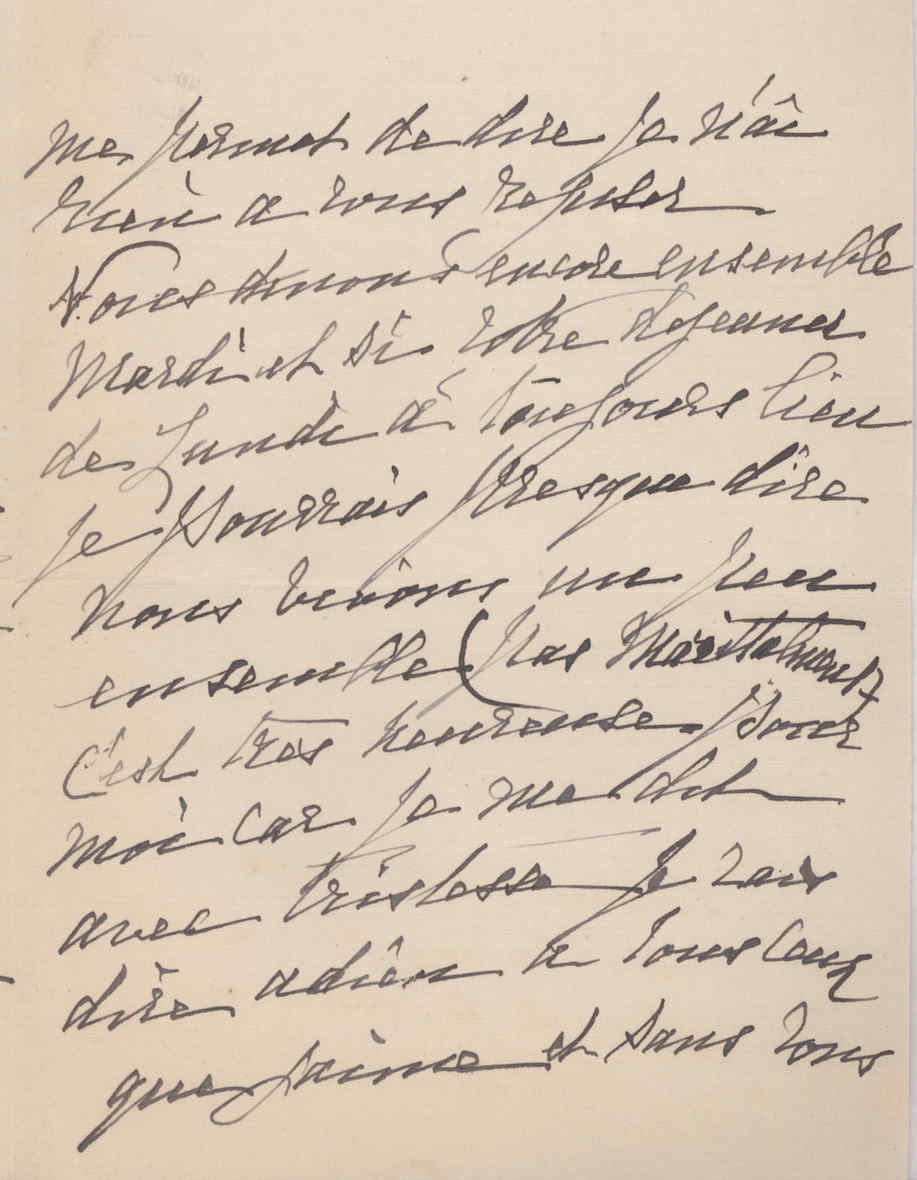 me permet de dire je n'ai
rien a vous refuser
Nous dinons encore ensemble
Mardi et si votre dejeuner
de Lundi a toujours lieu
je pourrais presque dire
nous vivons un peu
ensemble (pas
c'est tres heureuse pour
moi car je me dit
avec tristesse je vais
dire adieu a tous ceux
que j'aime et sans vous